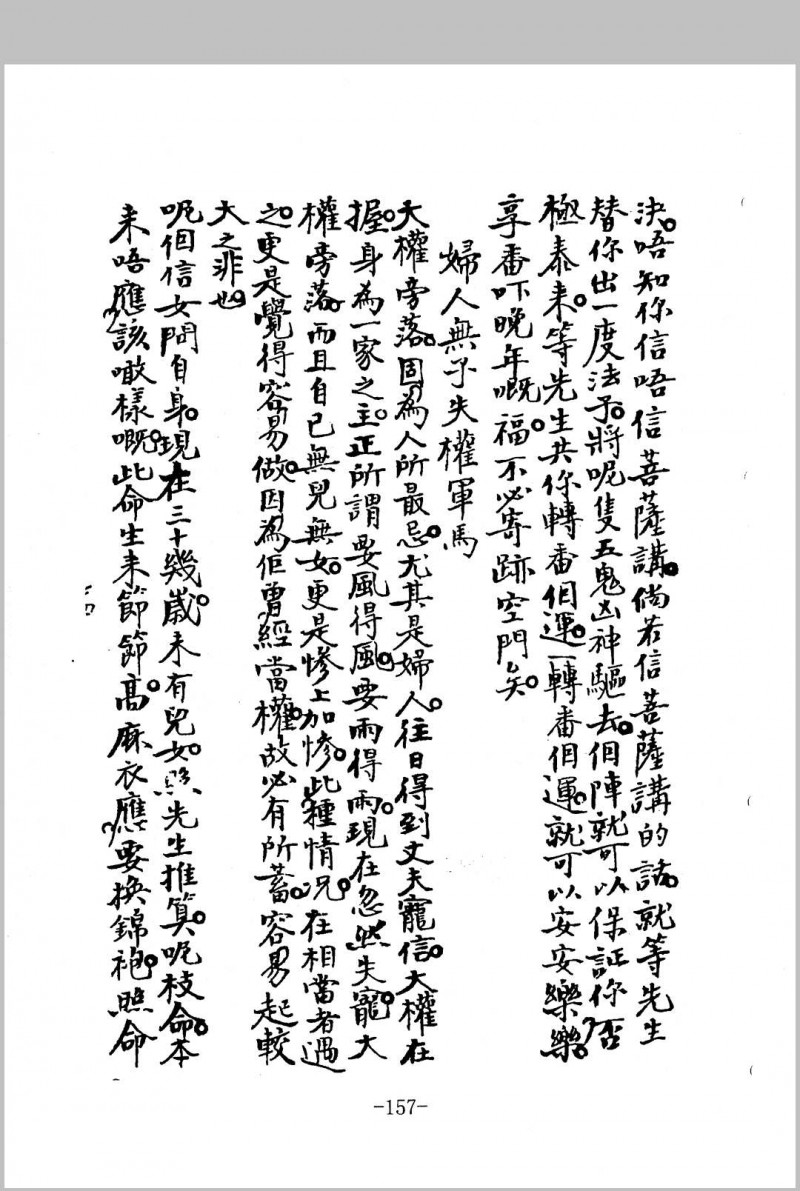 決。唔知你信唔信菩薩講。倘若信菩薩講的話。就等先生
替你出一度法子。將呢隻五鬼凶神驅去。個陣就可以保証你否
極泰来。等先生共你轉番個運。一轉番個運。就可以安安樂樂。
享番吓晚年嘅福。不必寄跡空門矣。
婦人無子失權軍馬
大權旁落。固為人所最忌。尤其是婦人。往日得到丈夫寵信。大權在
握。身為一家之主。正所謂要風得風。要雨得雨。現在忽然失寵。大
權旁落。而且自己無兒無女。更是慘上加慘。此種情况。在相當者遇
之。更是覺得容易做。因為佢曾經當權。故必有所蓄。容易起較
大之非也。
呢個信女問自身。現在三十幾歲。未有兒女。照先生推算。呢枝命。本
来唔應該噉樣嘅。此命生来節節高。麻衣應要換錦袍。照命
-157-